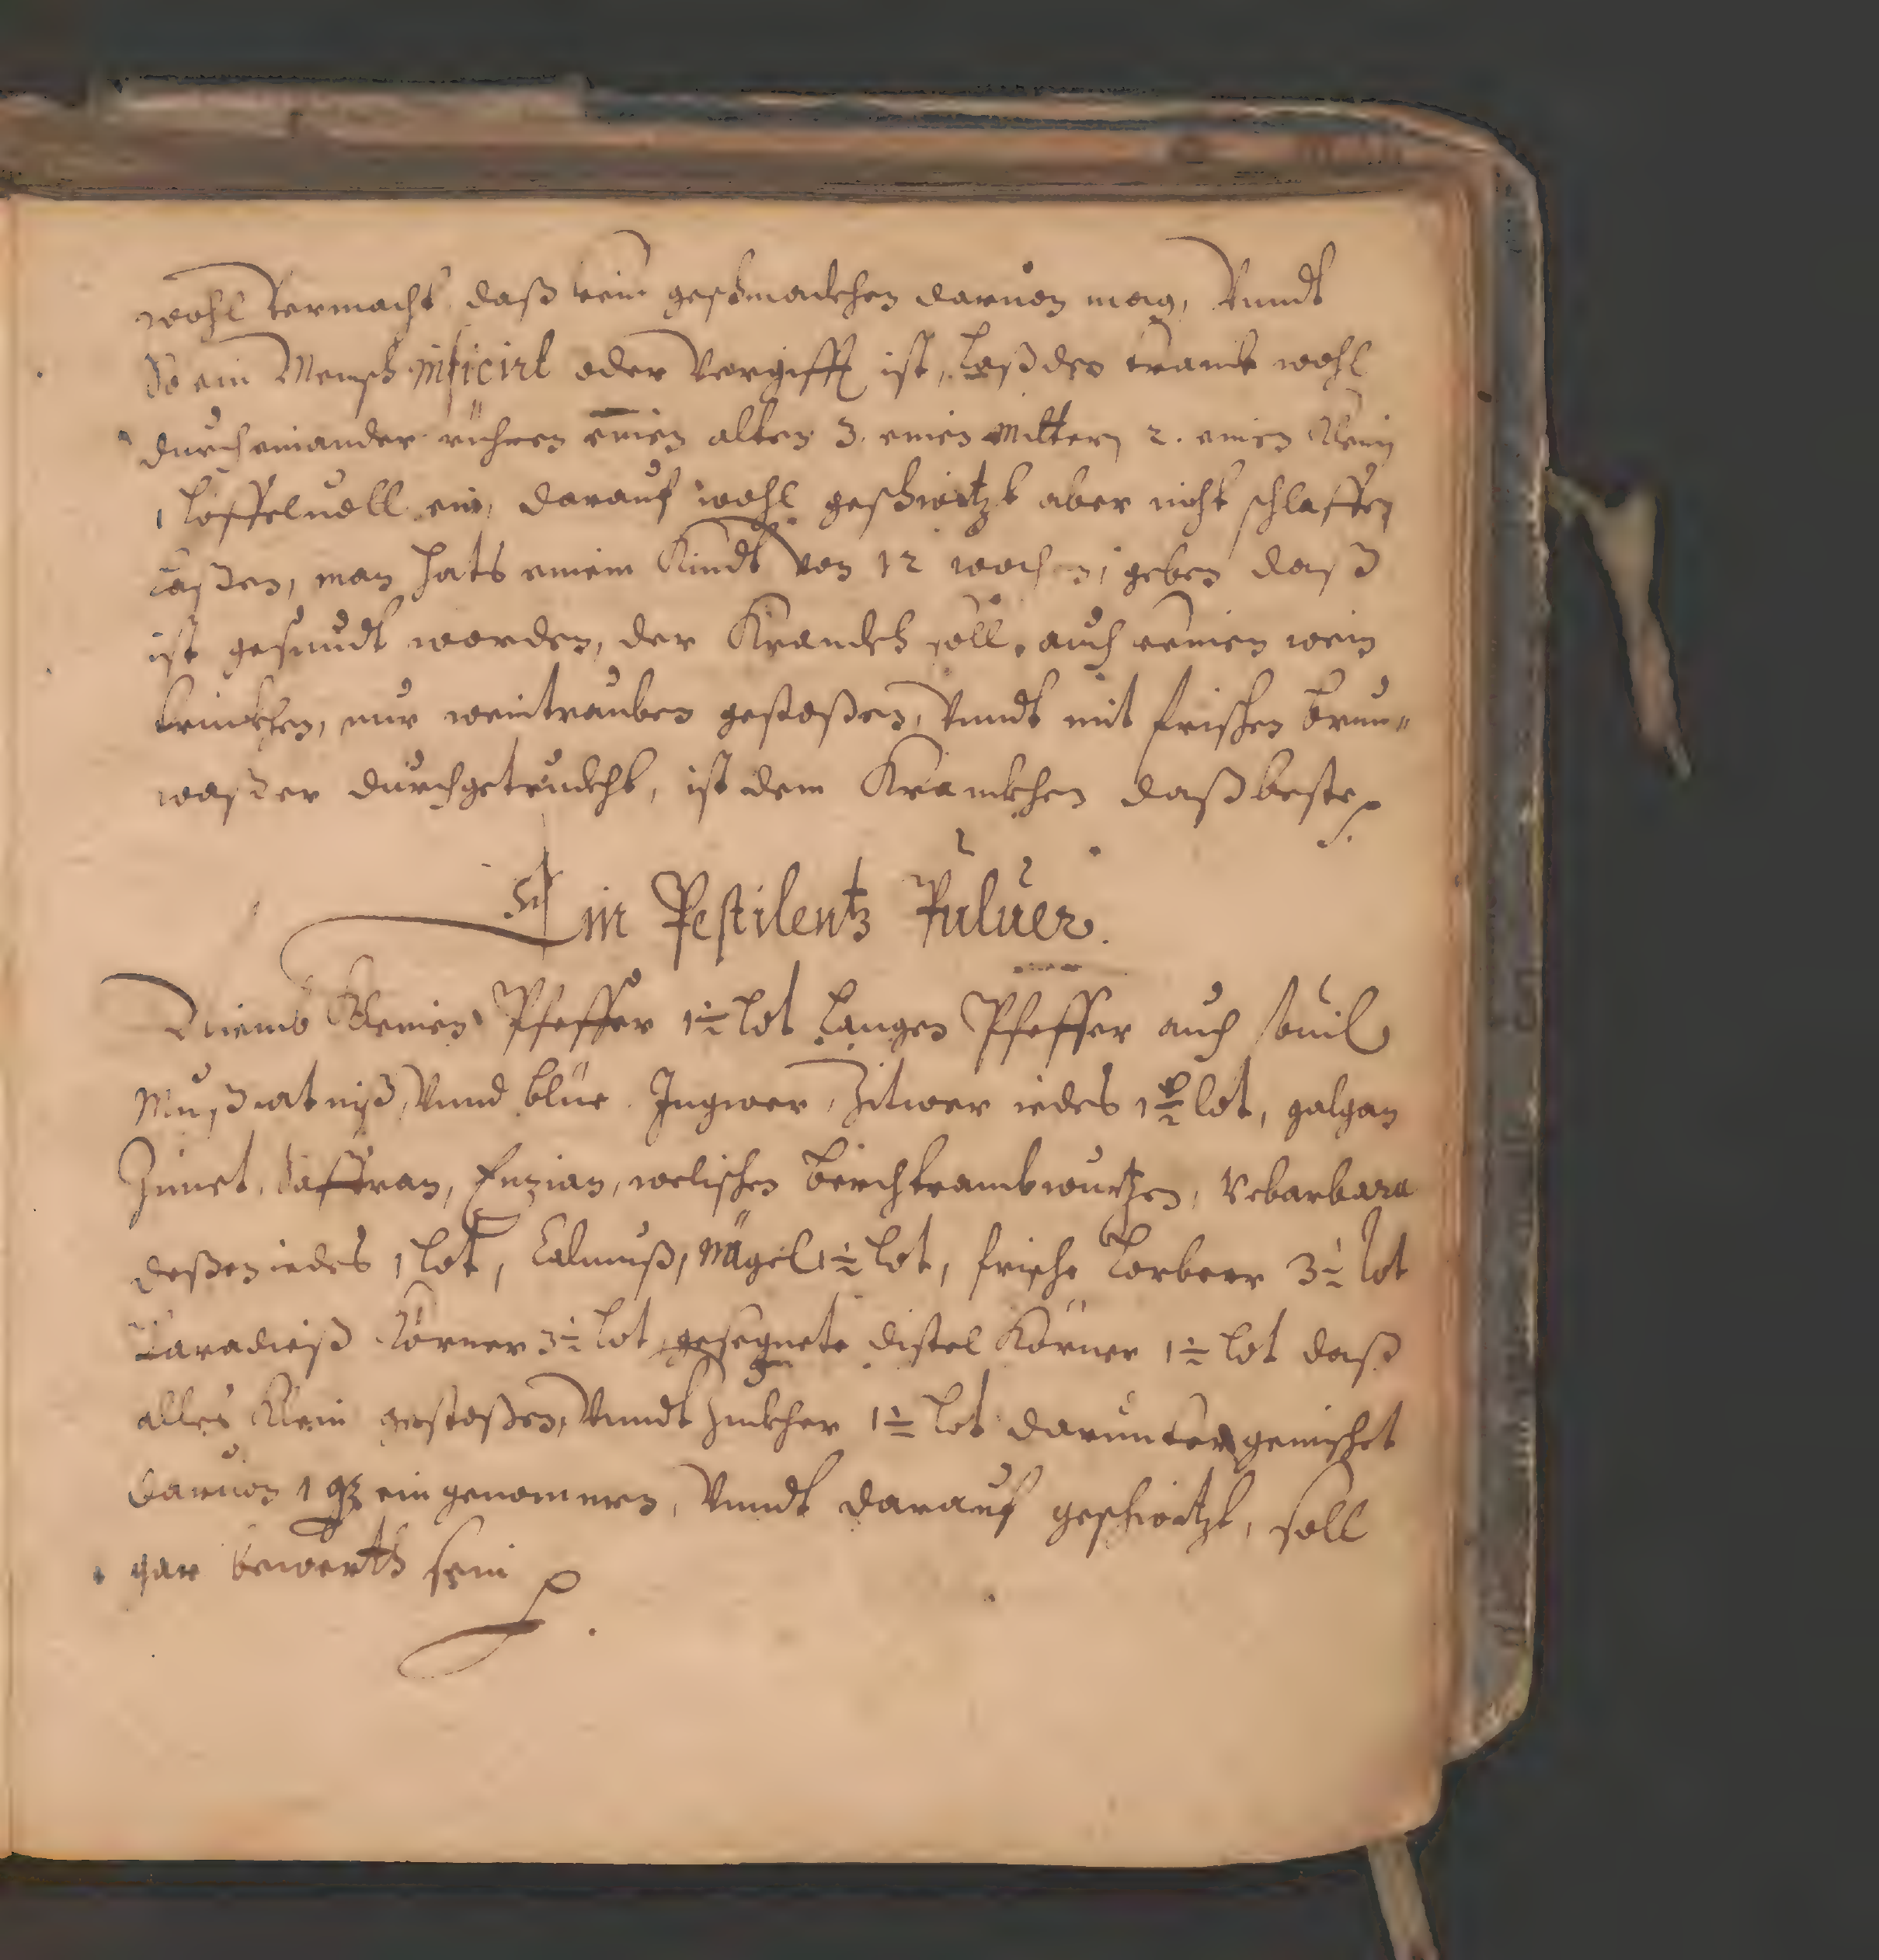 wohl vermacht daß kein geschmackhen daruon mag, Vnndt
So ein Mensch inficirt oder Vergifft ist, Laß den tranck wohl
durcheinander rühren einen alten 3. einen Mittern 2. einen Klein
1 Löffeluoll ein, darauf wohl geschwitzt aber nicht schlaffen
Laßen, man hats einem Kindt von 12 wochen, geben daß
ist gesundt worden, der Kranckh soll auch keinen wein
trinckhen, nur weintrauben gestoßen, Vnndt mit frischen brun"
waßer durchgetruckht, ist dem Kranckhen daß beste
Ein Pestilentz Puluer.
Niemb Kleinen Pfeffer 1½ lot Langen Pfeffer auch souil
Mußcatniß, Vnnd blüe Ingwer, Zitwer iedes 1½ lot, galgan
Zimet, Saffran, Enzian, welischen Berchtramb wurtzen, Rebarbara
deßen iedes 1 lot, Calmuß, Nägel 1½ lot, frische Lorbeer 3½ lot
Paradieß Körner 3½ lot gesegnete distel Körner 1½ lot daß
alles Klein gestoßen, Vnndt Zuckher 1½ lot darunter gemischet
daruon 1 ein genommen, Vnndt darauf geschwitzt, soll
gar bewerth sein